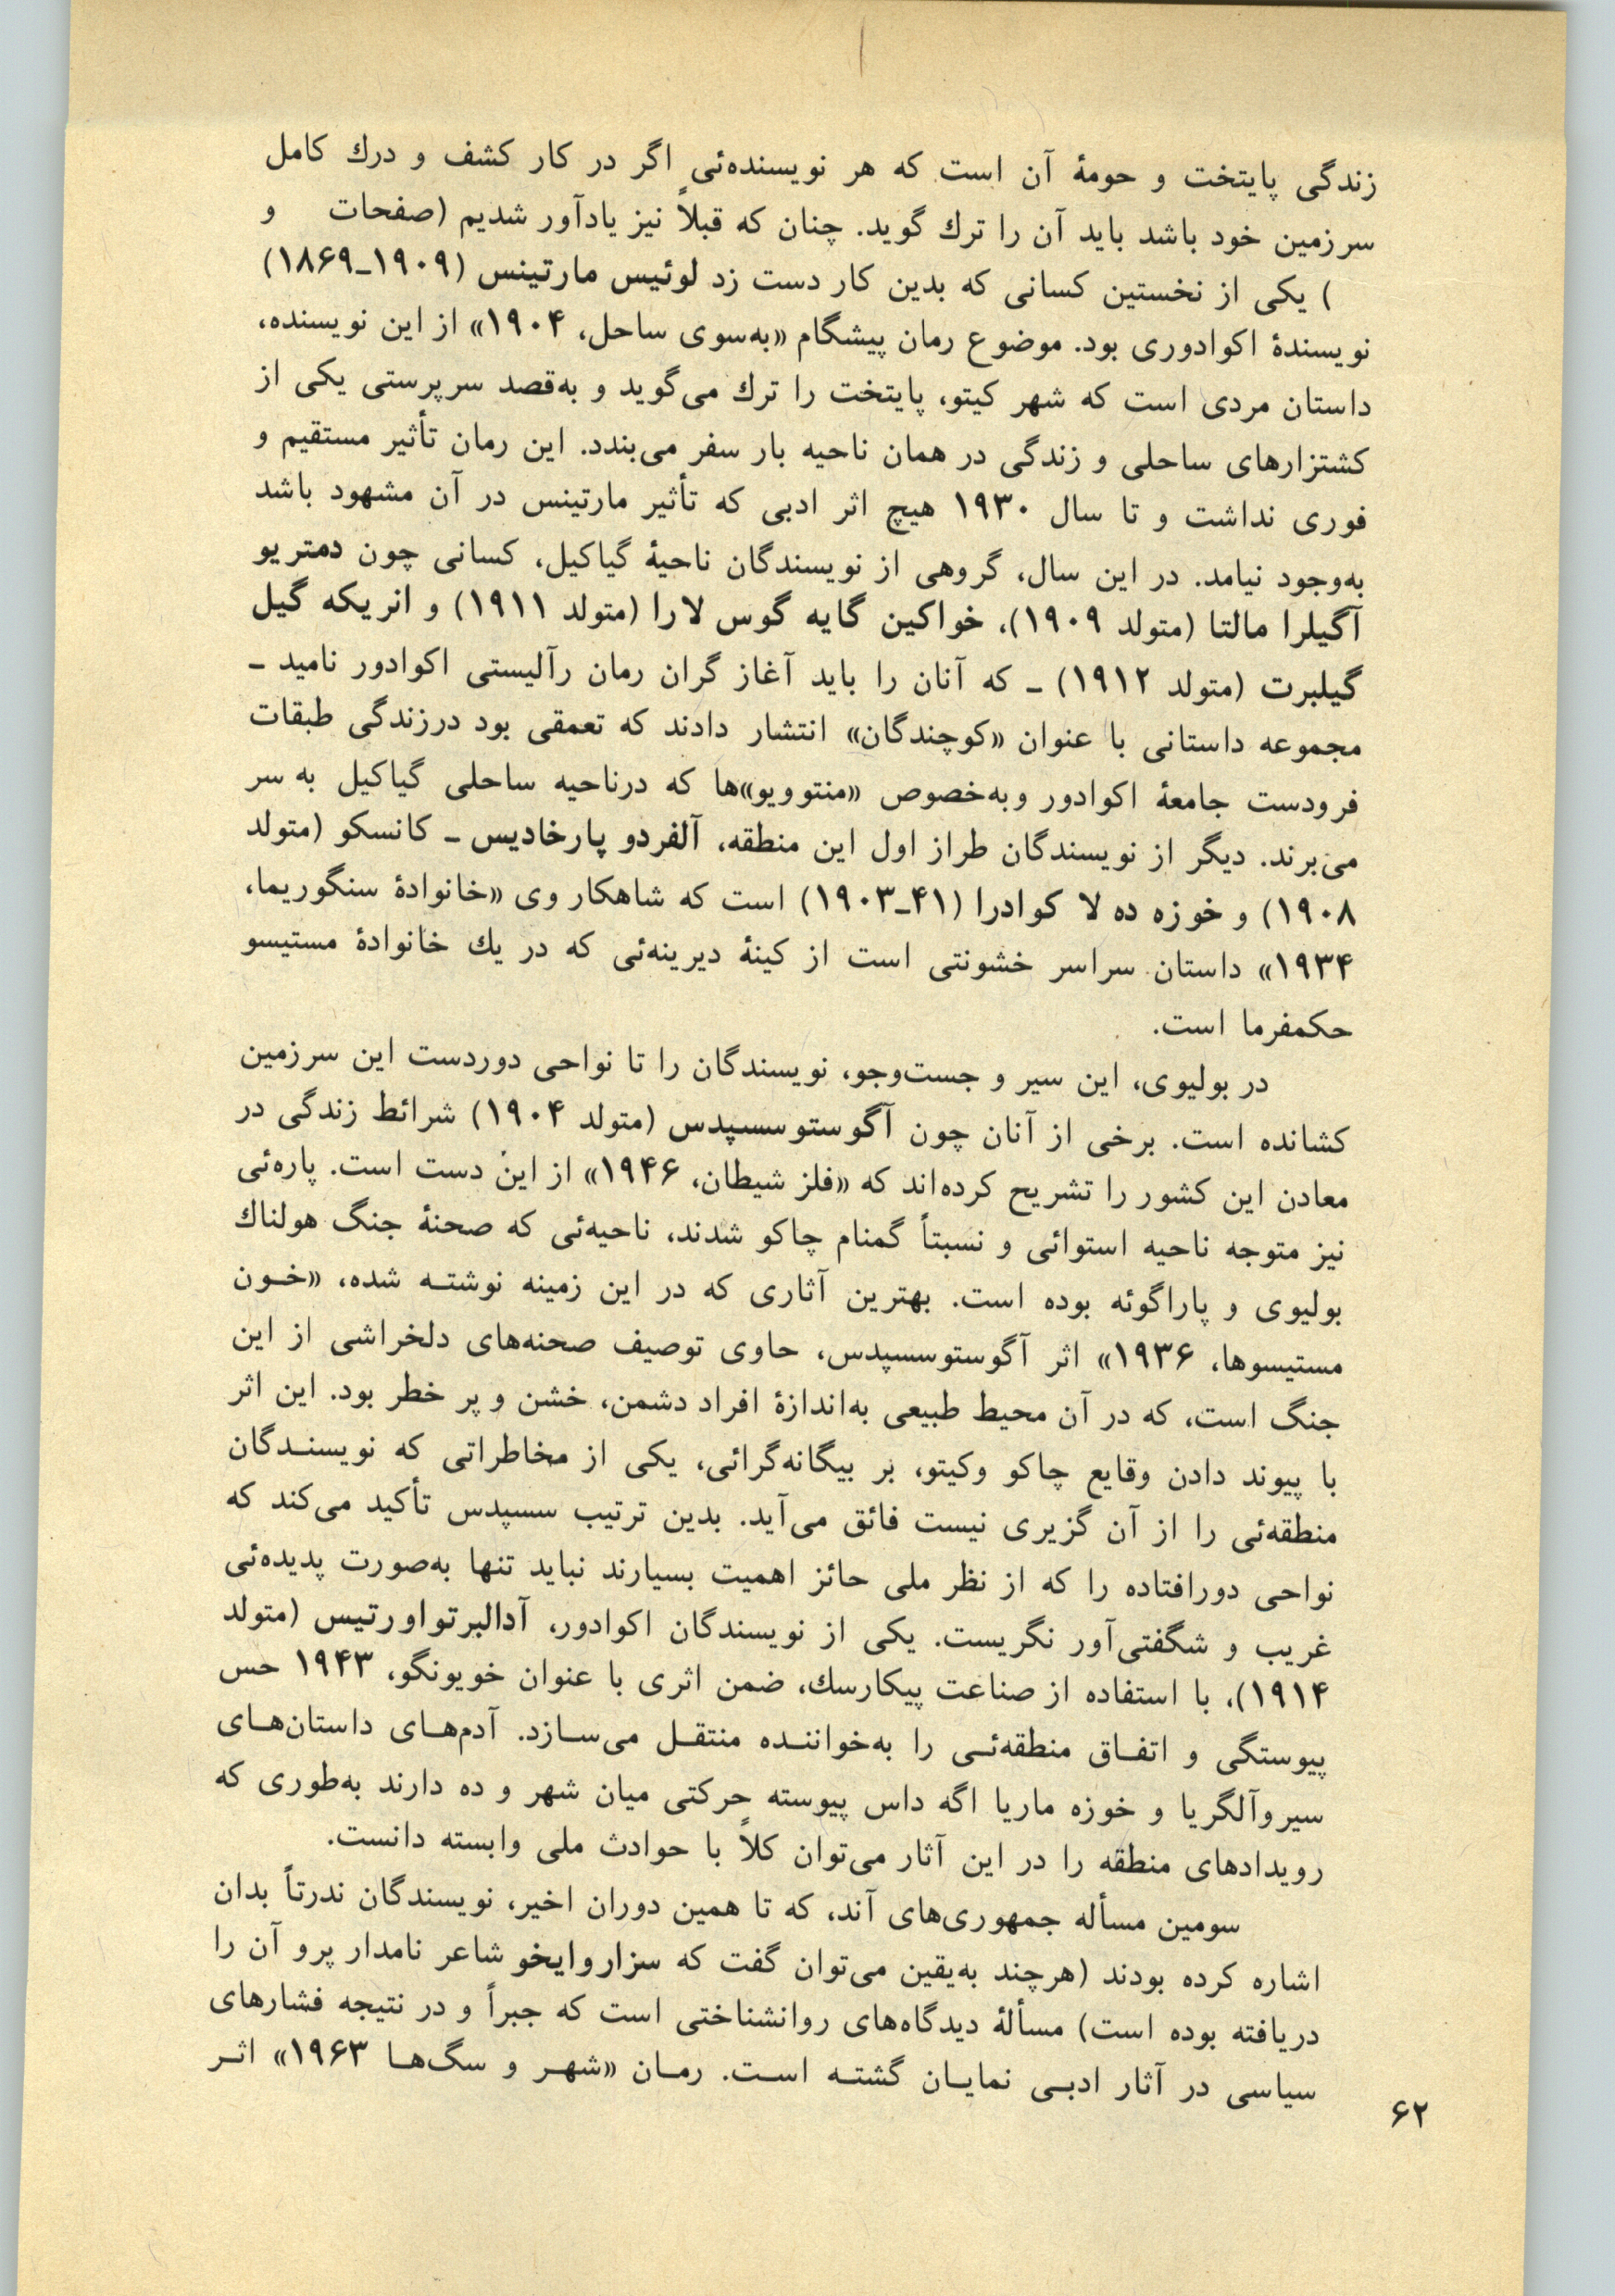 زندگی پایتخت و حومهٔ آن است که هر نویسنده‌ئی اگر در کار کشف و درك کامل
سرزمین خود باشد باید آن را ترك گوید. چنان که قبلاً نیز یادآور شدیم (صفحات و
) یکی از نخستین کسانی که بدین کار دست زد لوئیس مارتینس (۱۹۰۹ـ۱۸۶۹)
نویسندهٔ اکوادوری بود. موضوع رمان پیشگام «به‌سوی ساحل، ۱۹۰۴» از این نویسنده،
داستان مردی است که شهر کیتو، پایتخت را ترك می‌گوید و به‌قصد سرپرستی یکی از
کشتزارهای ساحلی و زندگی در همان ناحیه بار سفر می‌بندد. این رمان تأثیر مستقیم و
فوری نداشت و تا سال ۱۹۳۰ هیچ اثر ادبی که تأثیر مارتینس در آن مشهود باشد
به‌وجود نیامد. در این سال، گروهی از نویسندگان ناحیهٔ گیاکیل، کسانی چون دمتریو
آگیلرا مالتا (متولد ۱۹۰۹)، خواکین گایه گوس لارا (متولد ۱۹۱۱) و انریکه گیل
گیلبرت (متولد ۱۹۱۲) ـ که آنان را باید آغاز گران رمان رآلیستی اکوادور نامید ـ
مجموعه داستانی با عنوان «کوچندگان» انتشار دادند که تعمقی بود درزندگی طبقات
فرودست جامعهٔ اکوادور وبه‌خصوص «منتوویو»ها که درناحیه ساحلی گیاکیل به سر
می‌برند. دیگر از نویسندگان طراز اول این منطقه، آلفردو پارخادیس ـ کانسکو (متولد
۱۹۰۸) و خوزه ده لا کوادرا (۴۱ـ۱۹۰۳) است که شاهکار وی «خانوادهٔ سنگوریما،
۱۹۳۴» داستان سراسر خشونتی است از کینهٔ دیرینه‌ئی که در یك خانوادهٔ مستیسو
حکمفرما است.
در بولیوی، این سیر و جست‌وجو، نویسندگان را تا نواحی دوردست این سرزمین
کشانده است. برخی از آنان چون آگوستوسسپدس (متولد ۱۹۰۴) شرائط زندگی در
معادن این کشور را تشریح کرده‌اند که «فلز شیطان، ۱۹۴۶» از این دست است. پاره‌ئی
نیز متوجه ناحیه استوائی و نسبتاً گمنام چاکو شدند، ناحیه‌ئی که صحنهٔ جنگ هولناك
بولیوی و پاراگوئه بوده است. بهترین آثاری که در این زمینه نوشتـه شده، «خـون
مستیسوها، ۱۹۳۶» اثر آگوستوسسپدس، حاوی توصیف صحنه‌های دلخراشی از این
جنگ است، که در آن محیط طبیعی به‌اندازهٔ افراد دشمن، خشن و پر خطر بود. این اثر
با پیوند دادن وقایع چاکو وکیتو، بر بیگانه‌گرائی، یکی از مخاطراتی که نویسنـدگان
منطقه‌ئی را از آن گزیری نیست فائق می‌آید. بدین ترتیب سسپدس تأکید می‌کند که
نواحی دورافتاده را که از نظر ملی حائز اهمیت بسیارند نباید تنها به‌صورت پدیده‌ئی
غریب و شگفتی‌آور نگریست. یکی از نویسندگان اکوادور، آدالبرتواورتیس (متولد
۱۹۱۴)، با استفاده از صناعت پیکارسك، ضمن اثری با عنوان خویونگو، ۱۹۴۳ حس
پیوستگی و اتفـاق منطقه‌ئـی را به‌خواننـده منتقـل می‌سـازد. آدم‌هـای داستان‌هـای
سیروآلگریا و خوزه ماریا اگه داس پیوسته حرکتی میان شهر و ده دارند به‌طوری که
رویدادهای منطقه را در این آثار می‌توان کلاً با حوادث ملی وابسته دانست.
سومین مسأله جمهوری‌های آند، که تا همین دوران اخیر، نویسندگان ندرتاً بدان
اشاره کرده بودند (هرچند به‌یقین می‌توان گفت که سزاروایخو شاعر نامدار پرو آن را
دریافته بوده است) مسألهٔ دیدگاه‌های روانشناختی است که جبراً و در نتیجه فشارهای
سیاسی در آثار ادبـی نمایـان گشتـه اسـت. رمـان «شهـر و سگ‌هـا ۱۹۶۳» اثـر
۶۲